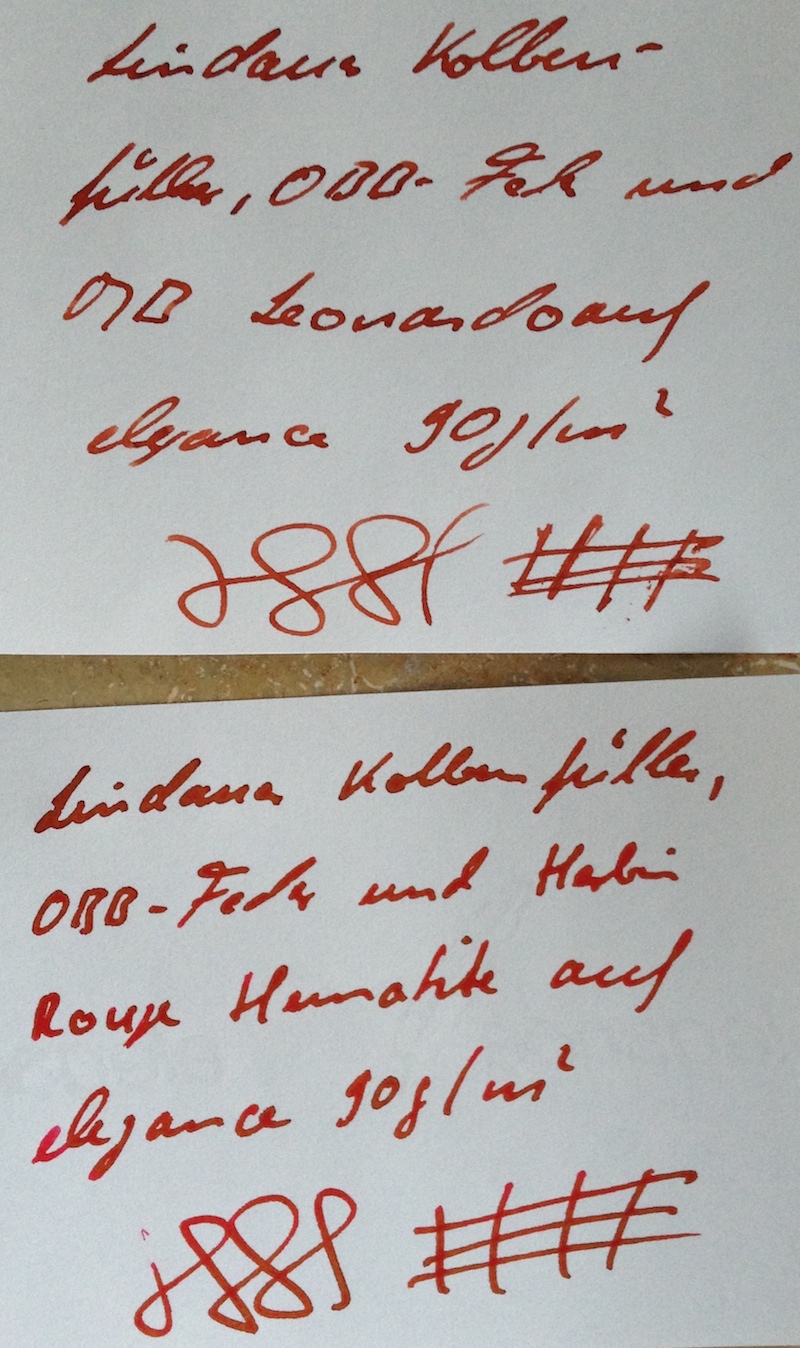 Lindauer Kolben-
füller, OBB- Feder und
OBB Leonardo auf
elegance 90g/m²
Lindauer Kolbenfüller,
OBB-Feder und Herbin
Rouge Hematite auf
elegance 90g/m²